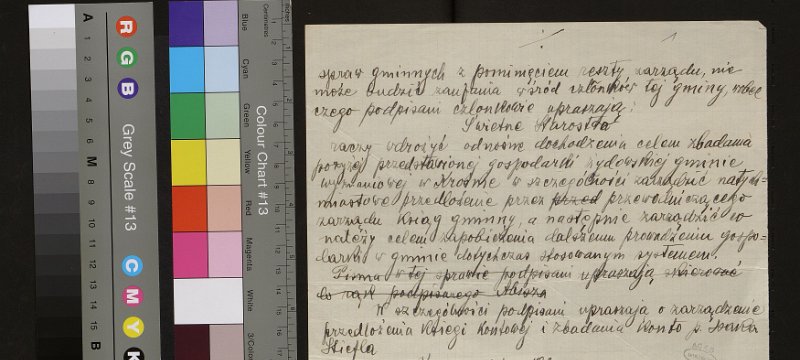 spraw gminnych z pominięciem reszty zarządu, nie
może budzić zaufania wśród członków tej gminy, wobec
czego podpisani członkowie upraszają:
Świetne Starostwo
raczy wdrożyć odnośne dochodzenia celem zbadania
pozycji przedstawionej gospodarki żydowskiej gminie
wyznaniowej w Krośnie w szczególności zarządzić natych=
miastowe przedłożenie przez przed przewodniczącego
zarządu ksiąg gminny, a następnie zarządzić co
należy celem zapobieżenia dalszemu prowadzeniu gospo=
darki w gminie dotychczas stosowanym systemem.
Pisma w tej sprawie podpisani upraszają skierować
do rąk podpisanego
W szczególności podpisani upraszają o zarządzenie
przedłożenia księgi kontowej i zbadania konto p. Izaka
Stiefla
A
1
2
3
4
5
6
M
8
9
10
11
12
13
14
15
B
R
G
B
Grey Scale #13
C
M
Y
K
Blue
Cyan
Green
Yellow
Red
Magenta
White
3/Colour
Colour Chart #13
Centimetres
Inches